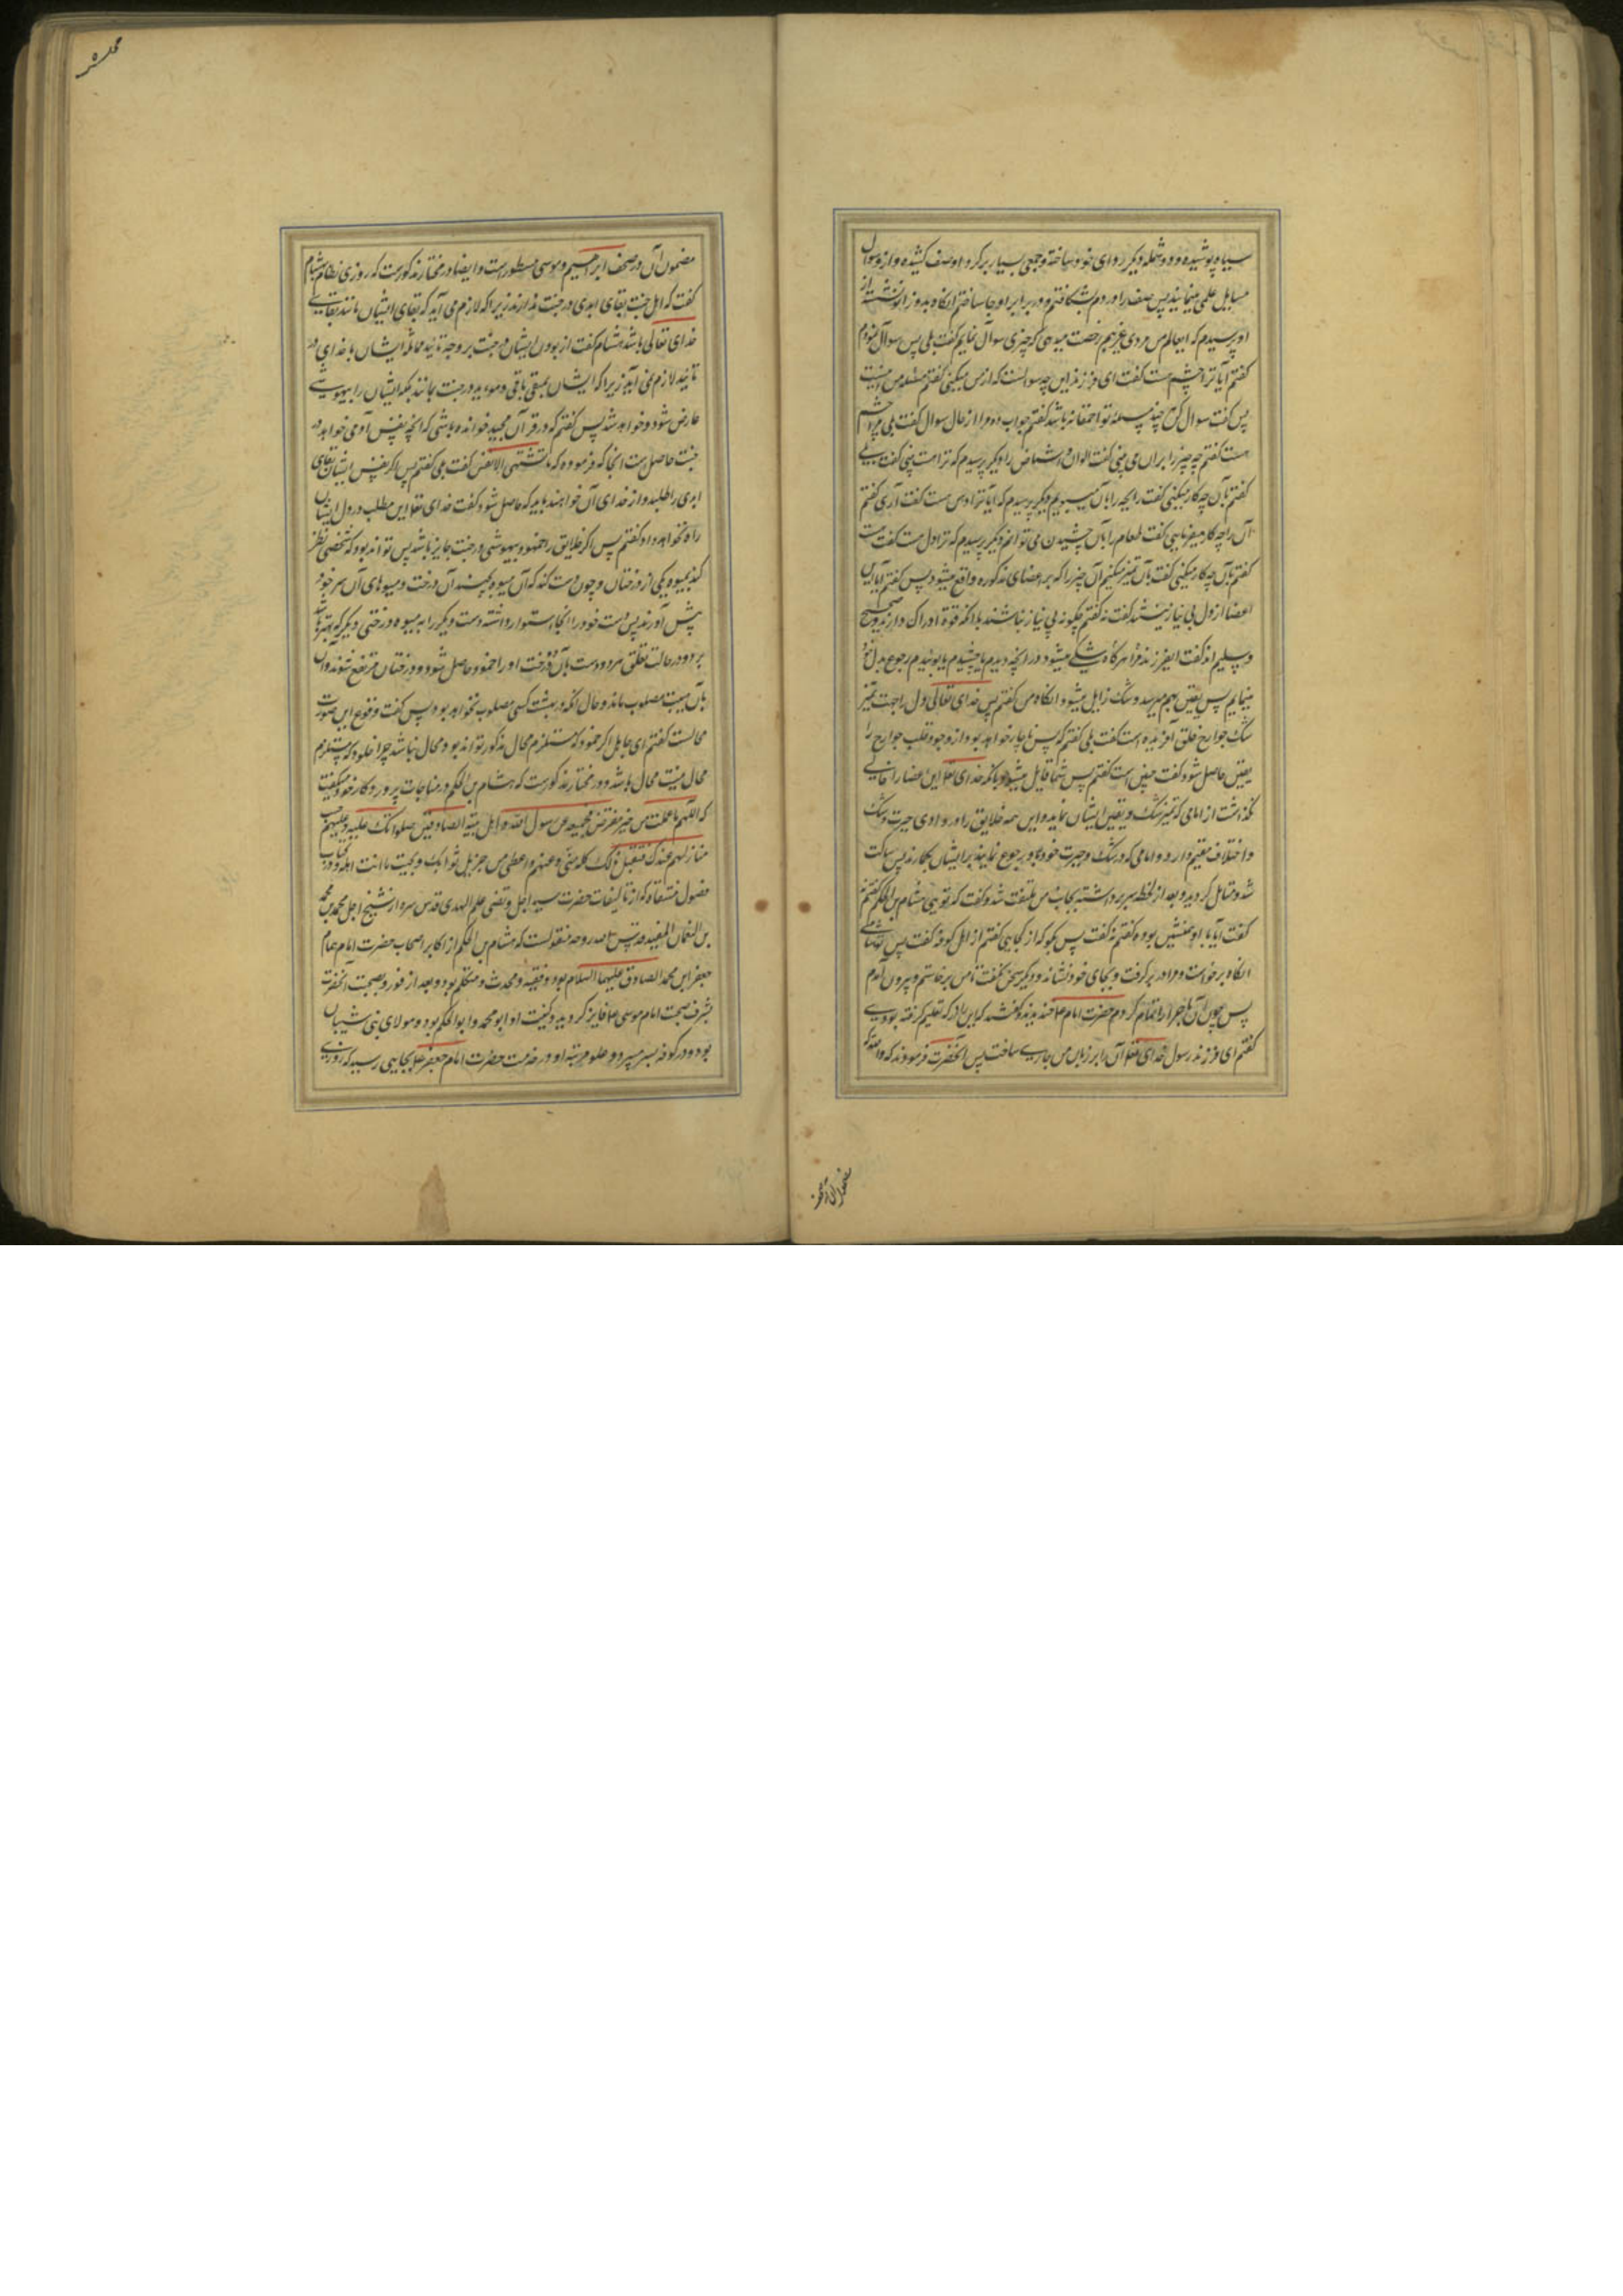 سیاه پوشیده و دو شمله دیگر ردای خود ساخته و جمعی بسیار بر گرد او صف کشیده و از او سوال
مسایل علمی مینمایند پس صف را درهم شکافتم و در برابر او جا ساختم آنگاه بدو زانو نشسته از
او پرسیدم که ایعالم من مردی غریبم رخصت میدهی که چیزی سوآل نمایم گفت بلی پس سوآل نمودم
گفتم آیا ترا چشم هست گفت ای فرزند این چه سوالست که از من میکنی گفتم مسئله من اینست
پس گفت سوال کن هر چند مسئله تو احمقانه باشد گفتم جواب ده مرا از حال سوال گفت بلی مرا چشم
هست گفتم چه چیز را بر آن می بینی گفت الوان و اشخاص را دیگر پرسیدم که ترا هست بینی گفت بلی
گفتم بآن چه کار میکنی گفت رایحه را بآن میبویم دیگر پرسیدم که آیا ترا دهن هست گفت آری گفتم
آن را چه کار میفرمایی گفت طعام را بآن چشیدن می توانم دیگر پرسیدم که ترا دل هست گفت هست
گفتم بآن چه کار میکنی گفت بآن تمیز میکنم آن چیز را که بر اعضای مذکوره واقع میشود پس گفتم آیا این
اعضا از دل بی نیاز نیستند گفت نه گفتم چگونه بی نیاز نباشند بلا آنکه قوة ادراک دارند و صحیح
و سلیم اند گفت ایفرزند فرا هرگاه شکی میشود در آنچه دیدیم یا چشیدیم یا بوئیدیم رجوع بدل خود
مینماییم پس یقین بهم میرسد و شک زایل میشود آنگاه من گفتم پس خدای تعالی دل را جهت تمیز
شک جوارح خلق آفریده است گفت بلی گفتم که پس ناچار خواهد بود از وجود قلب جوارح را
یقین حاصل شود گفت چنین است گفتم پس شما قایل میشوید بآنکه خدای تعا این اعضا را خالی
نگذاشت از امامی که تمیز شک و یقین ایشان نماید و این همه خلایق را در وادی حیرت و شک
و اختلاف مقیم دارد و امامی که در شک و حیرت خود باو رجوع نمایند بر ایشان نگمارد پس ساکت
شد و متامل گردید و بعد از لحظه سر برداشته بجانب من ملتفت شد و گفت که تو یی هشام بن الحکم گفتم نه
گفت آیا با او همنشین بوده گفتم نه گفت پس بگو که از کجایی گفتم از اهل کوفه گفت پس تو هشامی
آنگاه برخواست و مرا در بر گرفت و بجای خود نشاند و دیگر سخن نگفت تا من برخاستم و بیرون آمدم
پس چون آن ماجرا را تمام کردم حضرت امام عا خندیدند و گفتند که این را از که تعلیم گرفته بودی
گفتم ای فرزند رسول خدای تعا آن را بر زبان من جاری ساخت پس آنحضرت فرمودند که والله که
مضمون آن در صحف
مضمون آن در صحف ابراهیم و موسی مسطور است و ایضا در مختار مذکورست که روزی نظام بهشام
گفت که اهل جنت بقای ابدی در جنت ندارند زیرا که لازم می آید که بقای ایشان مانند بقای
خدای تعالی باشد هشام گفت از بودن ایشان در جنت بر وجه تایید مماثله ایشان با خدای در
تایید لازم نمی آید زیرا که ایشان بمبقی باقی و موءبد در جنت بمانند بلکه ایشان را بیهوشی
عارض شود و خواهد شد پس گفتم که در قرآن مجید خوانده باشی که آنچه نفس آدمی خواهد در
جنت حاصل است آنجا که فرموده که ما تشتهی الانفس گفت بلی گفتم پس اگر نفس ایشان بقای
ابدی را طلبد و از خدای آن خواهند باید که حاصل شود گفت خدای تعا این مطلب در دل ایشان
راه نخواهد داد گفتم پس اگر خلایق را خمود و بیهوشی در جنت جایز باشد پس تواند بود که شخصی نظر
کند بمیوه یکی از درختان و چون دست کند که آن میوه بچیند آن درخت و میوهای آن سر خود
پیش آورند پس دست خود را آنجا استوار داشته دست دیگر را به میوه درختی دیگر که بهتر باشد
برد و در حالت تعلق هر دو دست بآن دو درخت او را خمود حاصل شود و درختان مرتفع شوند و آن
بآن هییت مصلوب ماند و حال آنکه در بهشت کسی مصلوب نخواهد بود پس گفت وقوع این صورت
محالست گفتم ای جاهل اگر خمود که مستلزم محال مذکور تواند بود محال نباشد چرا خلود که مستلزم
محال نیست محال باشد و در مختار مذکورست که هشام بن الحکم در مناجات پروردگار خود میگفت
که اللهم ما عملت من خیر مفترض فجمیعه عن رسول الله و اهل بیته الصادقین صلواتک علیه و علیهم حسب
منازلهم عندک فتقبل ذلک کله منی و عنهم و اعطنی من جزیل ثوابک و بحیث ما انت اهله و در کتاب
فصول مستفاد که از تالیفات حضرت سید اجل مرتضی علم الهدی قدس سره از شیخ اجل محمد بن محمد
بن النعمان المفید قدس الله روحه منقولست که هشام بن الحکم از اکابر اصحاب حضرت امام همام
جعفر ابن محمد الصادق علیهما السلام بود و فقیه و محدث و متکلم بود و بعد از فوز بصحبت آنحضرت
بشرف صحبت امام موسی عا فایز گردیده و کنیت او ابو محمد و ابو الحکم بود و مولای بنی شیبان
بود و در کوفه بسر میبرد و علو مرتبه او در خدمت حضرت امام جعفر عا بجایی رسید که روزی